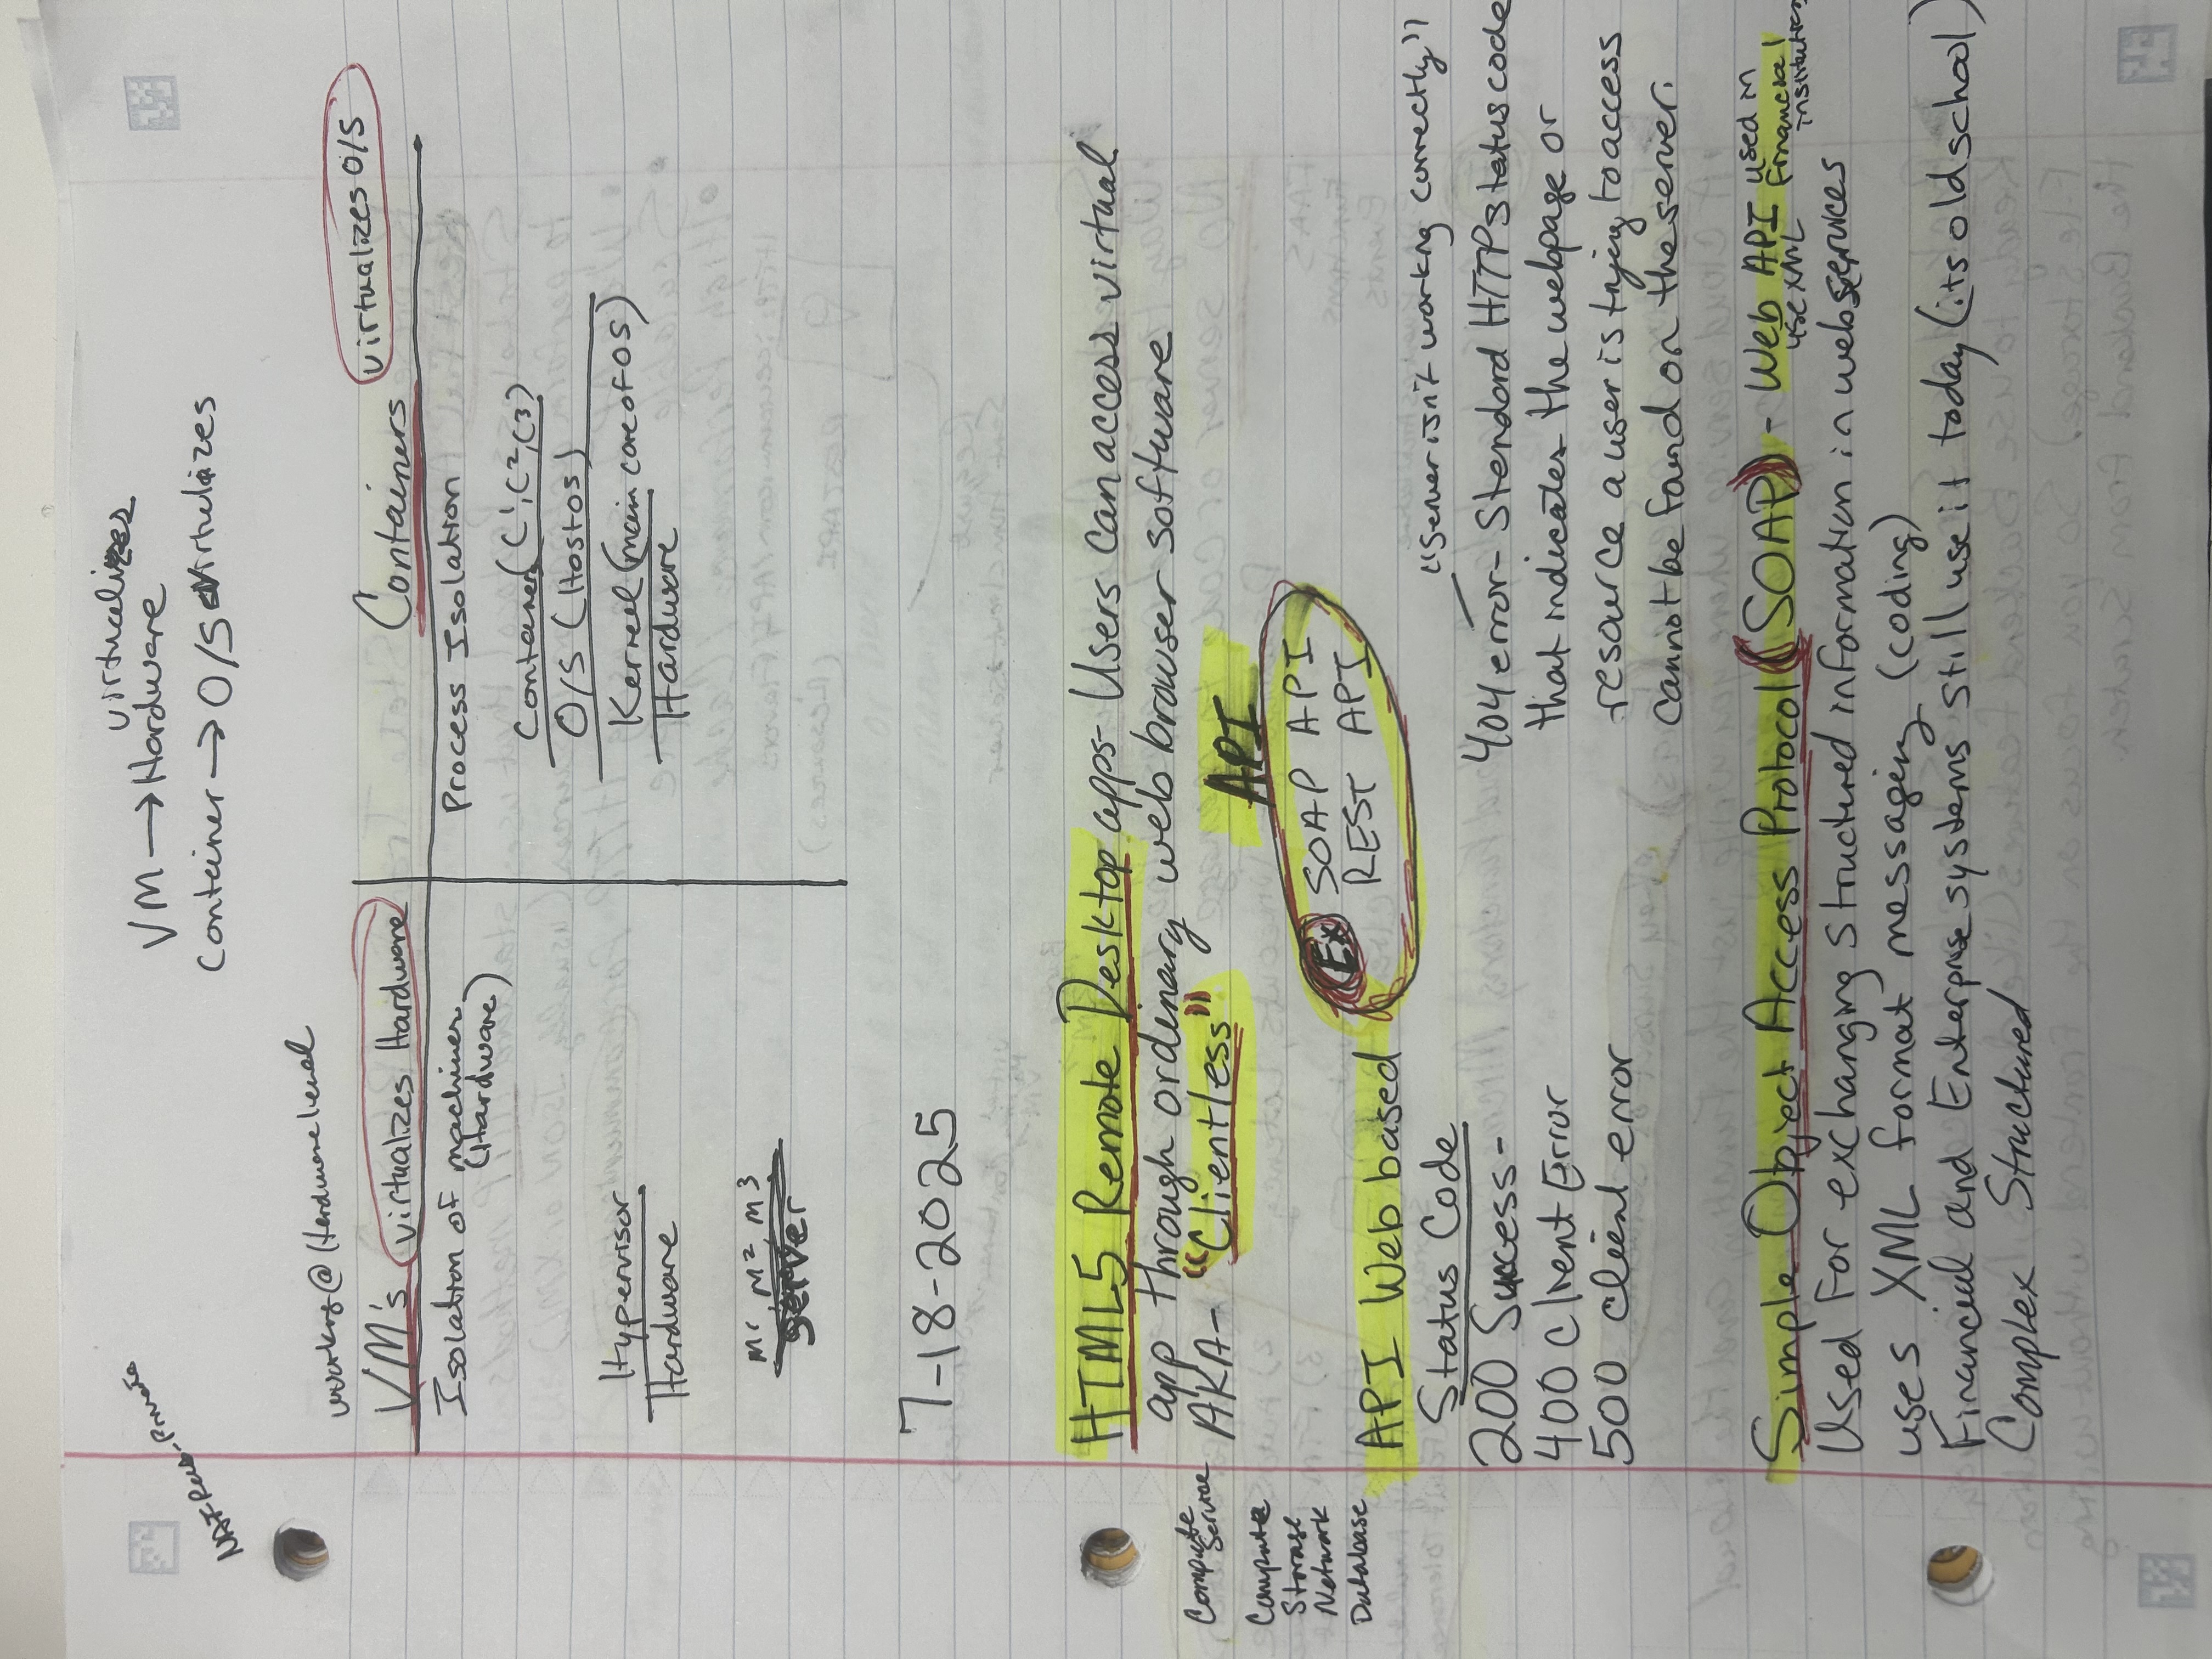 virtualizes
VM → Hardware
Container → O/S virtulizes
NAT-Pub-Private
working @ Hardware level
VM's virtualizes Hardware
Isolation of machines
(Hardware)
Hypervisor
Hardware
M1, M2, M3
Server
Containers virtualizes O/S
Process Isolation
Container (C1, C2, C3)
O/S (Host OS)
Kernel (main core of OS)
Hardware
7-18-2025
HTML5 Remote Desktop apps- Users can access virtual
app through ordinary web browser software
AKA- "Clientless"
Compute
Service
Compute
Storage
Network
Database
API
Ex SOAP API
REST API
API Web based
Status Code
200 Success-
400 Client Error
500 client error
"Server isn't working correctly"
404 error- Standard HTTP status code
that indicates the webpage or
resource a user is trying to access
cannot be found on the server.
Simple Object Access Protocol (SOAP) - Web API used in
use XML financial
institutions
Used for exchanging structured information in web services
uses XML format messaging (coding)
Financial and Enterprise systems still use it today (its old school)
Complex Structured